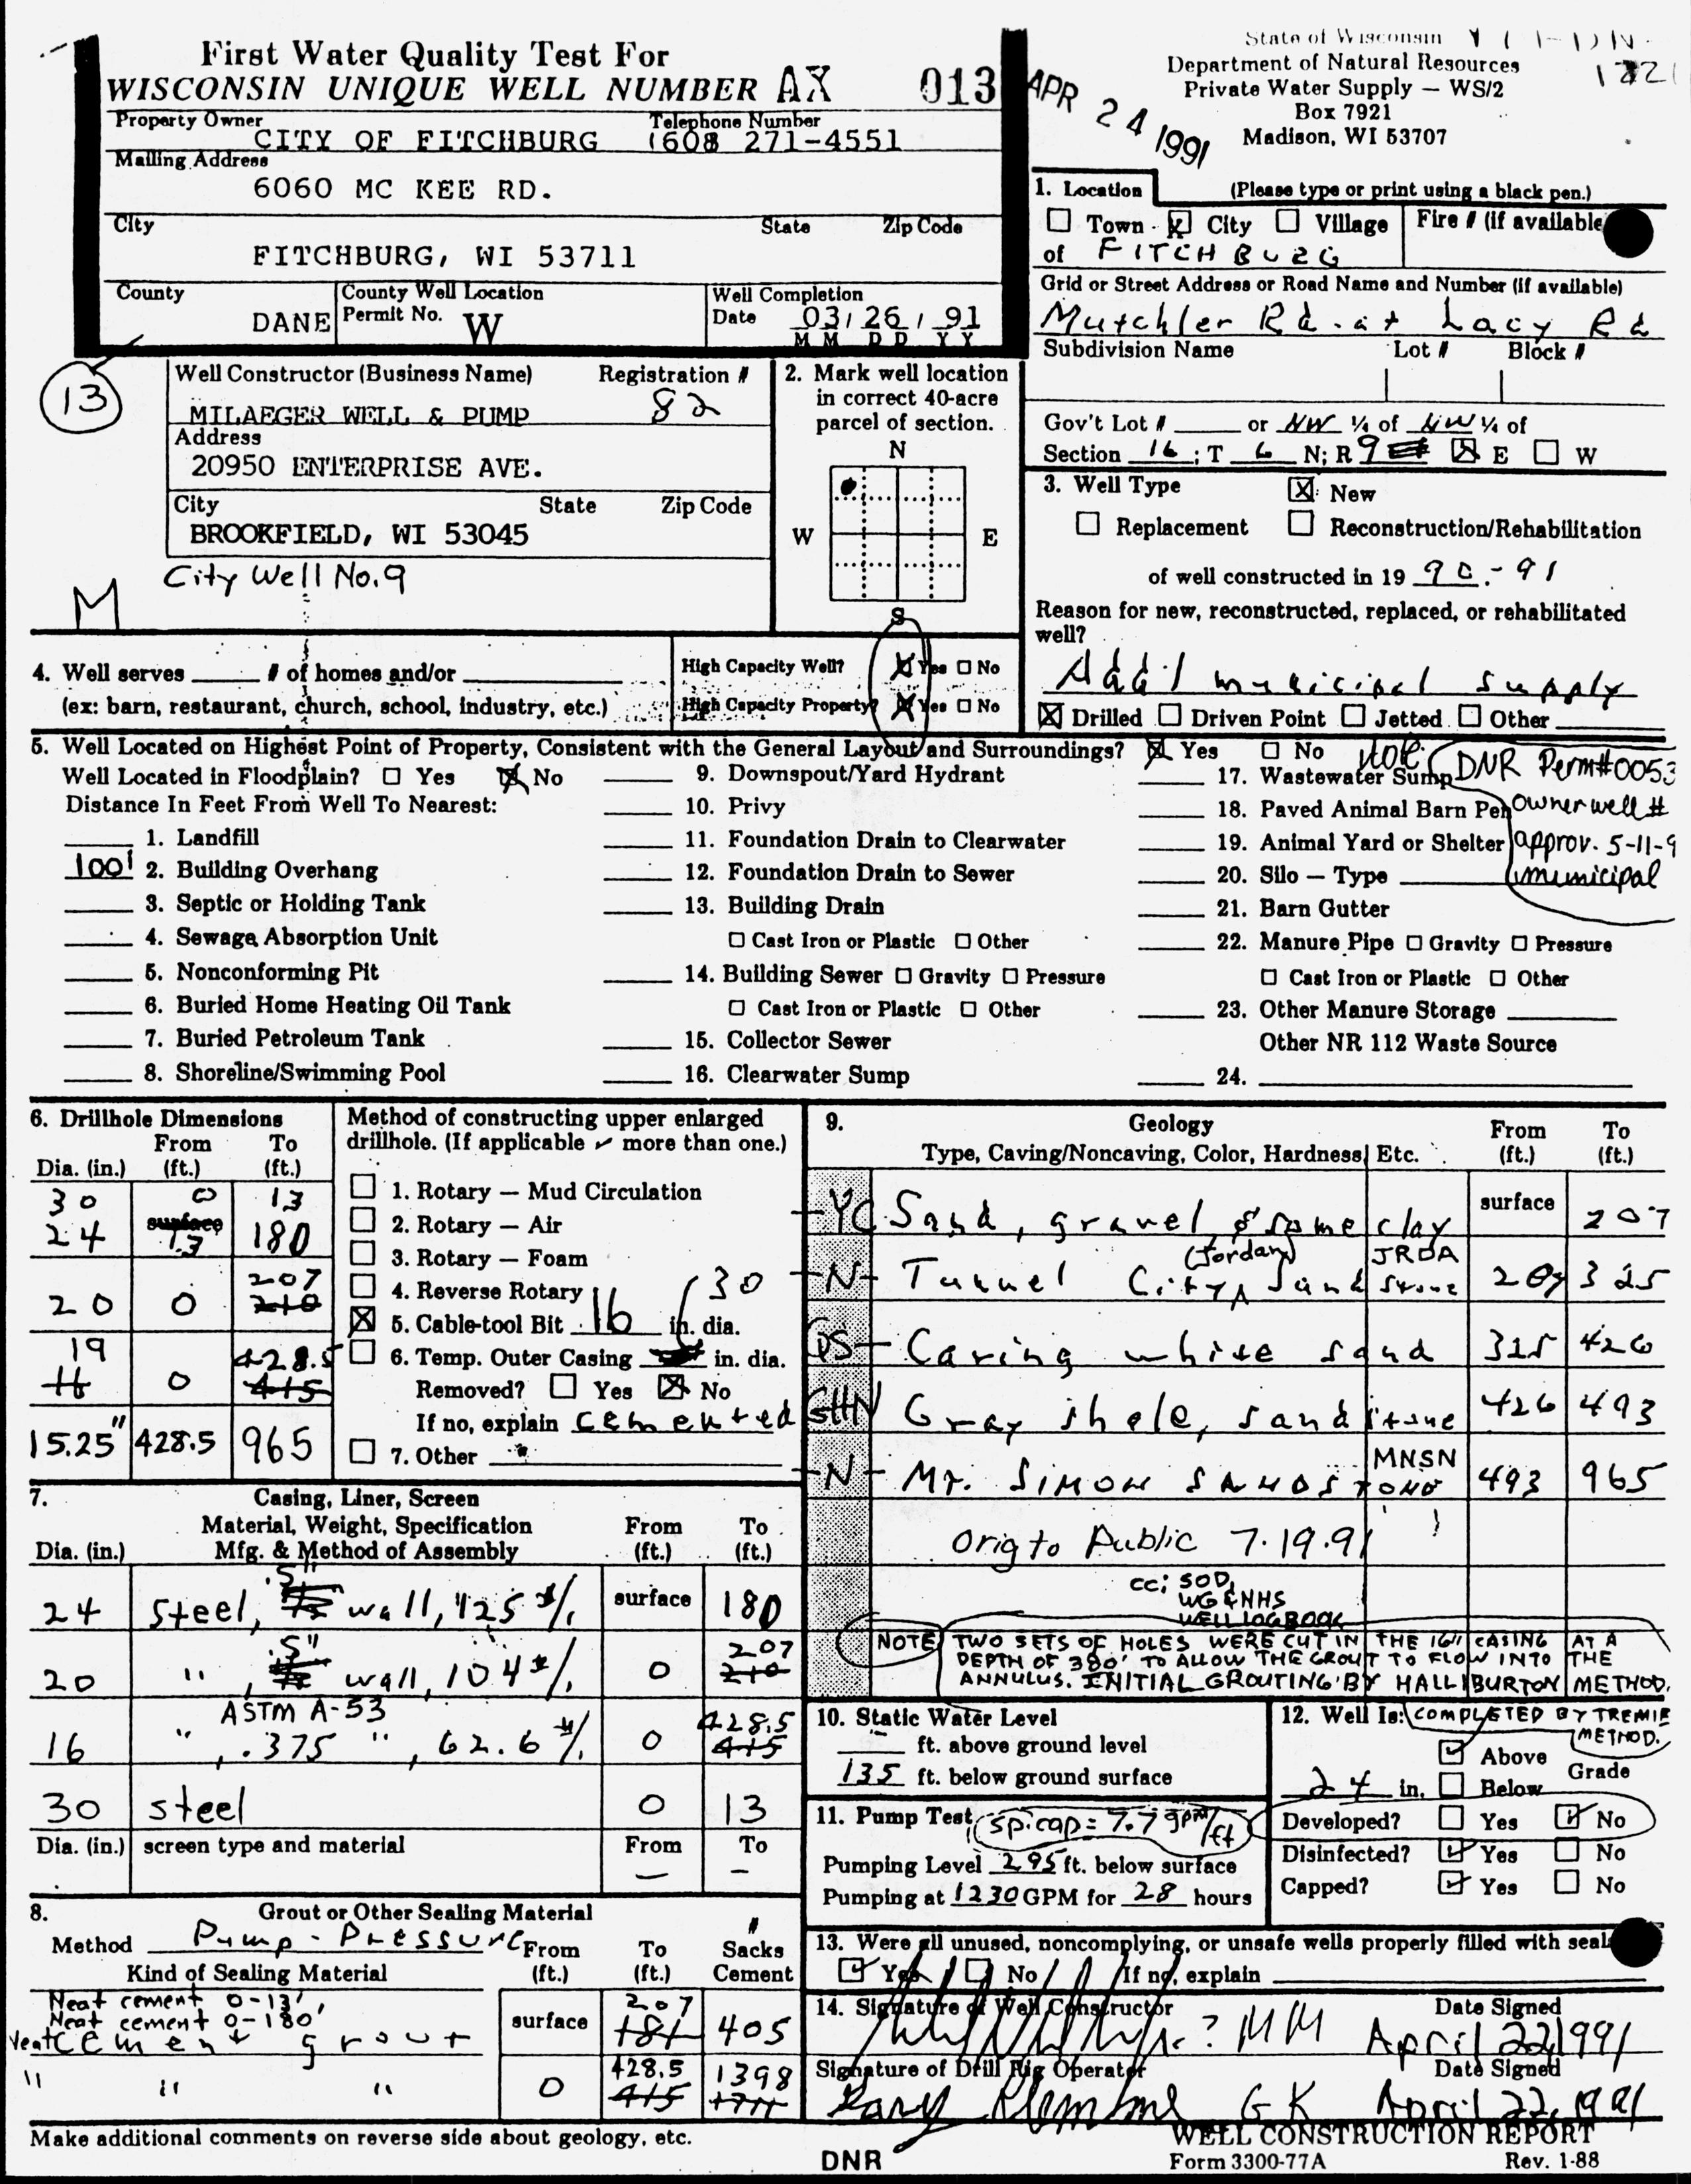 First Water Quality Test For
WISCONSIN UNIQUE WELL NUMBER AX 013
APR 24 1991
State of Wisconsin
Department of Natural Resources
Private Water Supply — WS/2
Box 7921
Madison, WI 53707
Property Owner Telephone Number
CITY OF FITCHBURG (608 271-4551
Mailing Address
6060 MC KEE RD.
City State Zip Code
FITCHBURG, WI 53711
County County Well Location Permit No. Well Completion Date
DANE W 03/26/91
MM DD YY
1. Location (Please type or print using a black pen.)
☐ Town ☒ City ☐ Village Fire # (if available
of FITCHBURG
Grid or Street Address or Road Name and Number (if available)
Mutchler Rd. at Lacy Rd
Subdivision Name Lot # Block #
Gov't Lot # ____ or NW ¼ of NW ¼ of
Section 16 ; T 6 N; R 9 ☒ E ☐ W
13
Well Constructor (Business Name) Registration #
MILAEGER WELL & PUMP 82
Address
20950 ENTERPRISE AVE.
City State Zip Code
BROOKFIELD, WI 53045
City Well No. 9
M
2. Mark well location
in correct 40-acre
parcel of section.
N
W E
S
3. Well Type ☒ New
☐ Replacement ☐ Reconstruction/Rehabilitation
of well constructed in 19 90-91
Reason for new, reconstructed, replaced, or rehabilitated
well?
Add'l municipal supply
☒ Drilled ☐ Driven Point ☐ Jetted ☐ Other
4. Well serves ____ # of homes and/or ____
(ex: barn, restaurant, church, school, industry, etc.)
High Capacity Well? ☒ Yes ☐ No
High Capacity Property? ☒ Yes ☐ No
5. Well Located on Highest Point of Property, Consistent with the General Layout and Surroundings? ☒ Yes ☐ No
Well Located in Floodplain? ☐ Yes ☒ No
Distance In Feet From Well To Nearest:
1. Landfill
100' 2. Building Overhang
3. Septic or Holding Tank
4. Sewage Absorption Unit
5. Nonconforming Pit
6. Buried Home Heating Oil Tank
7. Buried Petroleum Tank
8. Shoreline/Swimming Pool
9. Downspout/Yard Hydrant
10. Privy
11. Foundation Drain to Clearwater
12. Foundation Drain to Sewer
13. Building Drain
☐ Cast Iron or Plastic ☐ Other
14. Building Sewer ☐ Gravity ☐ Pressure
☐ Cast Iron or Plastic ☐ Other
15. Collector Sewer
16. Clearwater Sump
17. Wastewater Sump
18. Paved Animal Barn Pen
19. Animal Yard or Shelter
20. Silo — Type
21. Barn Gutter
22. Manure Pipe ☐ Gravity ☐ Pressure
☐ Cast Iron or Plastic ☐ Other
23. Other Manure Storage
Other NR 112 Waste Source
24.
Note: DNR Perm#0053
owner well #
approv. 5-11-9
municipal
6. Drillhole Dimensions
From To
Dia. (in.) (ft.) (ft.)
30 0 13
24 surface 13 180
20 0 207 210
19 16 0 428.5 415
15.25" 428.5 965
Method of constructing upper enlarged
drillhole. (If applicable ✓ more than one.)
☐ 1. Rotary — Mud Circulation
☐ 2. Rotary — Air
☐ 3. Rotary — Foam
☐ 4. Reverse Rotary
☒ 5. Cable-tool Bit 16 in. dia.
30
☐ 6. Temp. Outer Casing ____ in. dia.
Removed? ☐ Yes ☒ No
If no, explain cemented
☐ 7. Other
7. Casing, Liner, Screen
Material, Weight, Specification From To
Dia. (in.) Mfg. & Method of Assembly (ft.) (ft.)
24 steel, .5" wall, 125#/, surface 180
20 " , .5" wall, 104#/, 0 207 210
ASTM A-53
16 " , .375 " , 62.6#/, 0 428.5 415
30 steel 0 13
Dia. (in.) screen type and material From To
— —
8. Grout or Other Sealing Material
Method Pump-Pressure
Kind of Sealing Material From (ft.) To (ft.) # Sacks Cement
Neat cement 0-13',
Neat cement 0-180'
Neat Cement grout surface 207 181 405
" " " 0 428.5 415 1398
Make additional comments on reverse side about geology, etc.
9. Geology
Type, Caving/Noncaving, Color, Hardness, Etc. From (ft.) To (ft.)
YC Sand, gravel, & some clay surface 207
N Tunnel City, (Jordan) Sandstone JRDA 207 325
DS Caving white sand 325 426
SHN Gray shale, sandstone 426 493
N Mt. SIMON SANDSTONE MNSN 493 965
Orig to Public 7.19.91
cc: SOD,
WG&NHS
WELL LOG BOOK
NOTE TWO SETS OF HOLES WERE CUT IN THE 16" CASING AT A
DEPTH OF 380' TO ALLOW THE GROUT TO FLOW INTO THE
ANNULUS. INITIAL GROUTING BY HALLIBURTON METHOD.
COMPLETED BY TREMIE
METHOD.
10. Static Water Level
— ft. above ground level
135 ft. below ground surface
11. Pump Test sp.cap = 7.7 gpm/ft
Pumping Level 295 ft. below surface
Pumping at 1230 GPM for 28 hours
12. Well Is:
24 in. ☑ Above ☐ Below Grade
Developed? ☐ Yes ☑ No
Disinfected? ☑ Yes ☐ No
Capped? ☑ Yes ☐ No
13. Were all unused, noncomplying, or unsafe wells properly filled with seal
☑ Yes ☐ No If no, explain
14. Signature of Well Constructor Date Signed
MM April 22 1991
Signature of Drill Rig Operator Date Signed
GK April 22, 1991
DNR
WELL CONSTRUCTION REPORT
Form 3300-77A Rev. 1-88